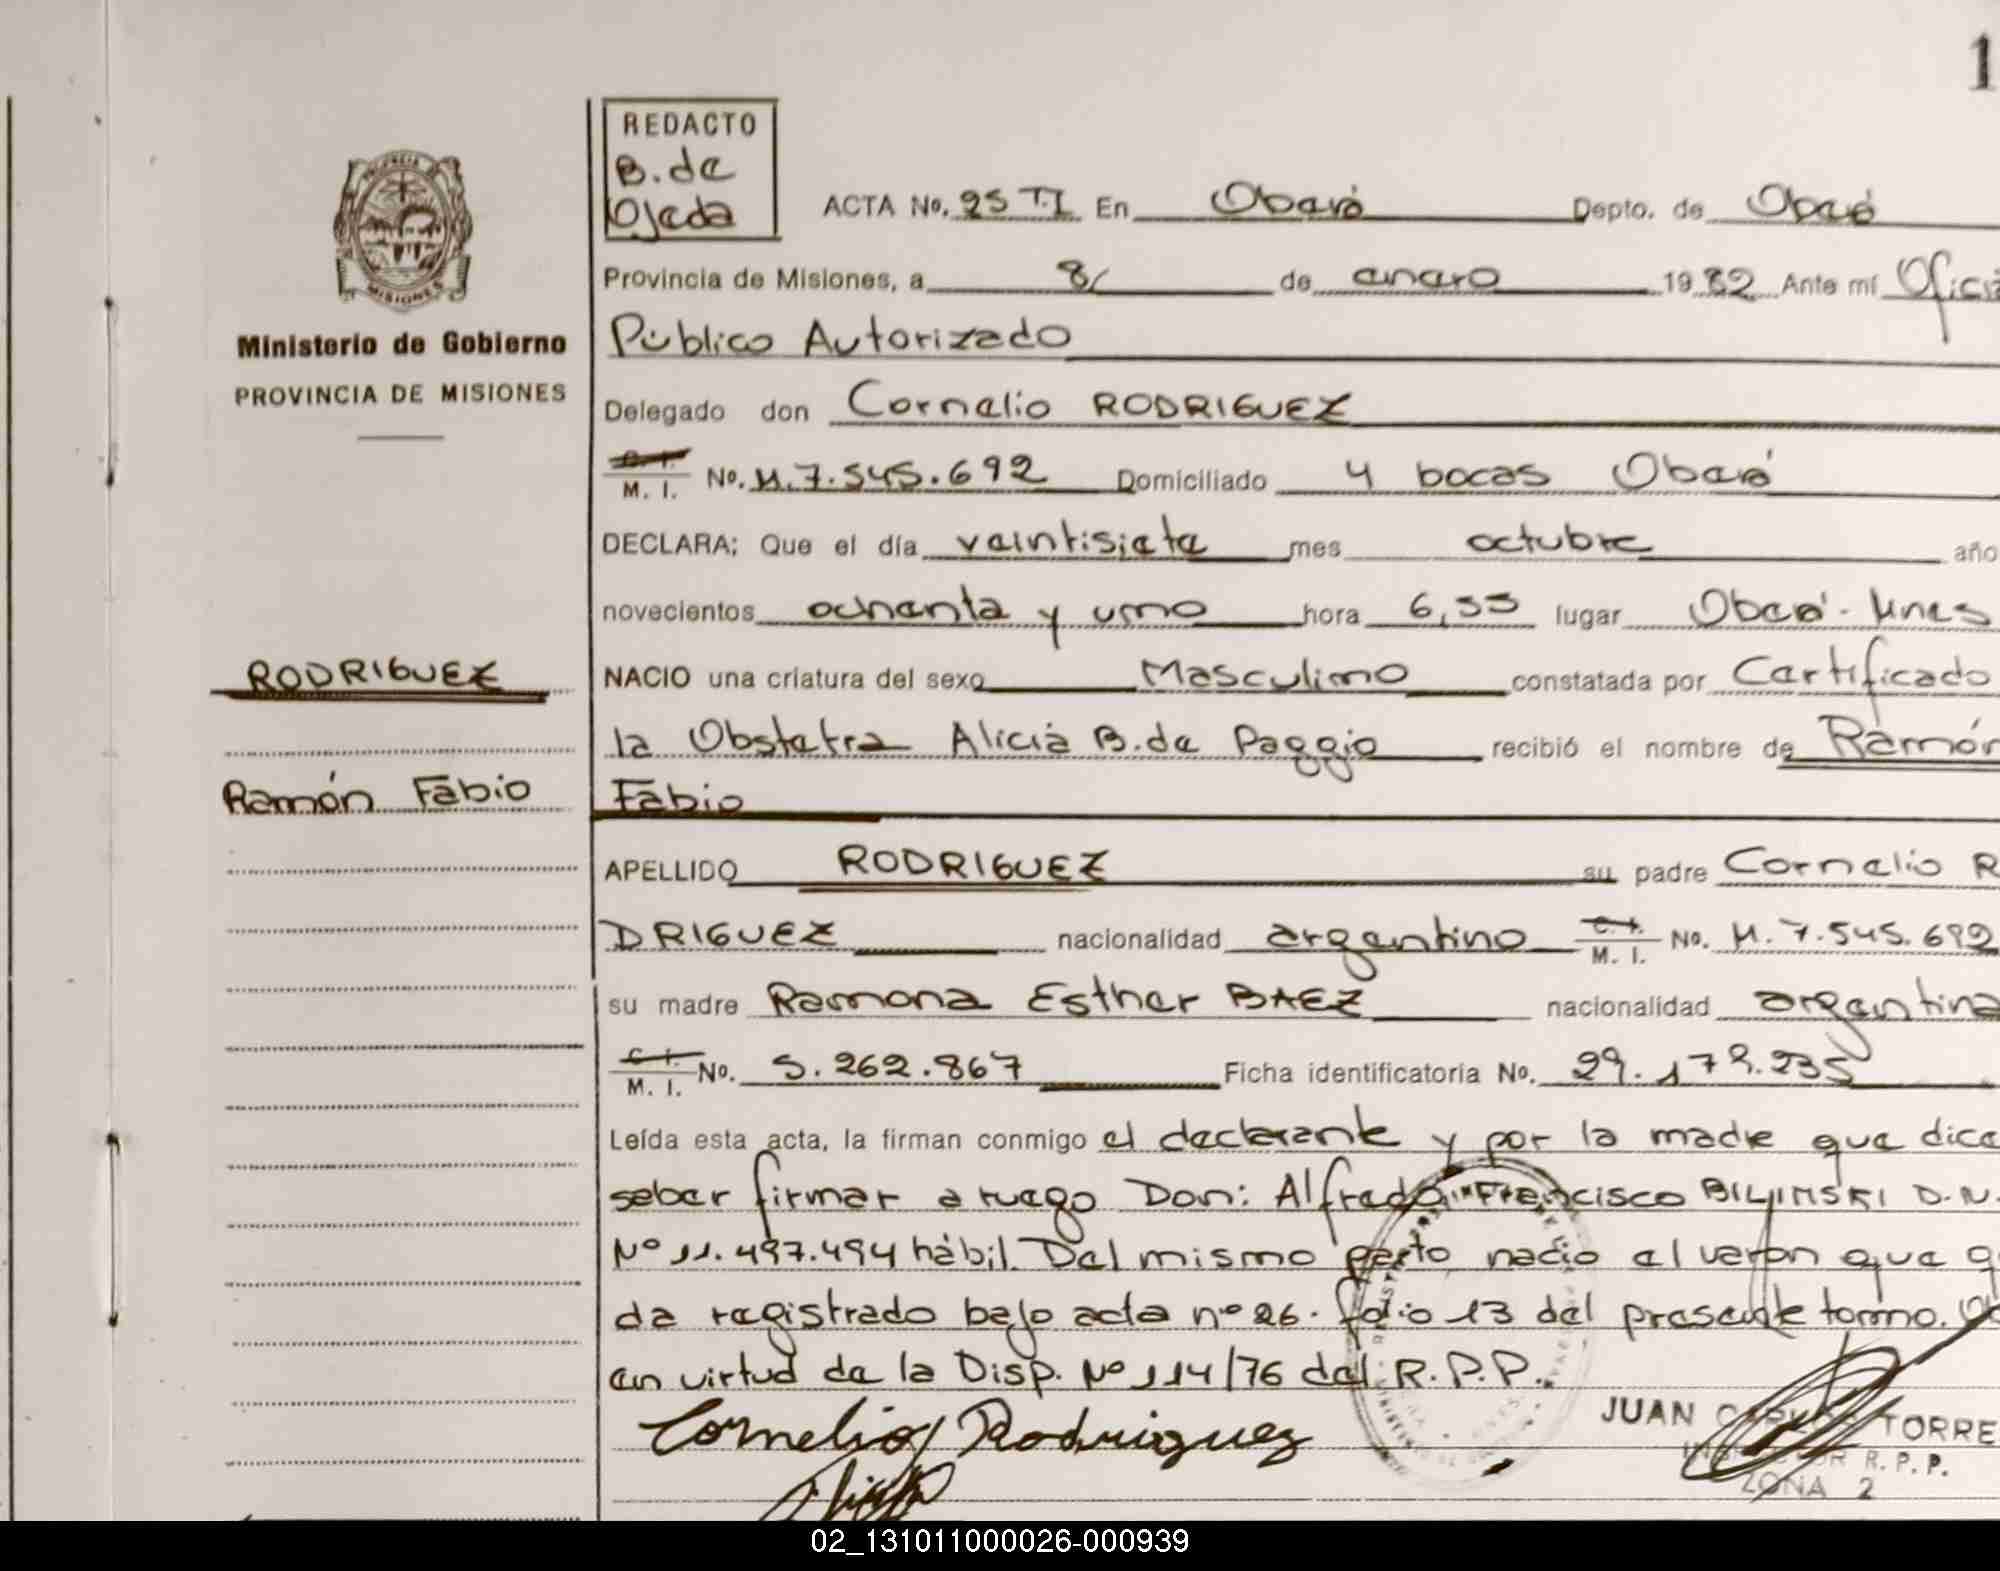 1
REDACTO
B. de
Ojeda
ACTA No. 25 T.I En Oberá Depto. de Oberá
Provincia de Misiones, a 8/ de enero 1982 Ante mí Oficia
Público Autorizado
Delegado don Cornelio RODRIGUEZ
C. I.
M. I. No. M. 7.545.692 Domiciliado 4 bocas Oberá
DECLARA: Que el día veintisiete mes octubre año
novecientos ochenta y uno hora 6,55 lugar Oberá - Mnes
NACIO una criatura del sexo Masculino constatada por Certificado
la Obstetra Alicia B. de Paggio recibió el nombre de Ramón
Fabio
APELLIDO RODRIGUEZ su padre Cornelio R
DRIGUEZ nacionalidad argentino C. I.
M. I. No. M. 7.545.692
su madre Ramona Esther BAEZ nacionalidad argentina
C. I.
M. I. No. 5.262.867 Ficha identificatoria No. 29.172.235
Leída esta acta, la firman conmigo el declarante y por la madre que dice
saber firmar a ruego Don: Alfredo Francisco D.N.
Nº 11.497.494 hábil. Del mismo parto nacio el varon que q
da registrado bajo acta nº 26. folio 13 del presente tomo.
en virtud de la Disp. Nº 114/76 del R.P.P.
Cornelio Rodriguez
JUAN CARLOS TORRE
INSPECTOR R. P. P.
ZONA 2
PROVINCIA DE
MISIONES
Ministerio de Gobierno
PROVINCIA DE MISIONES
RODRIGUEZ
Ramón Fabio
02_131011000026-000939